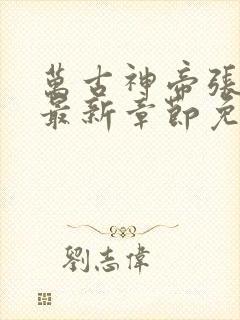 萬古神帝張
最新章節免
劉志偉